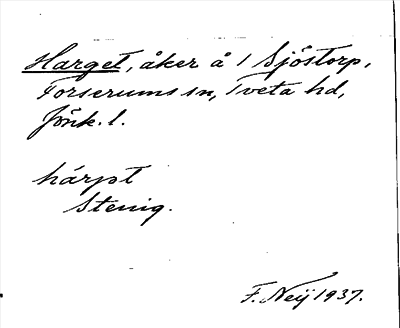 Harget, åker å 1 Sjöstorp,
Forserums sn, Tveta hd,
Jönk. l.
hárgət
Stenig.
F. Neij 1937.